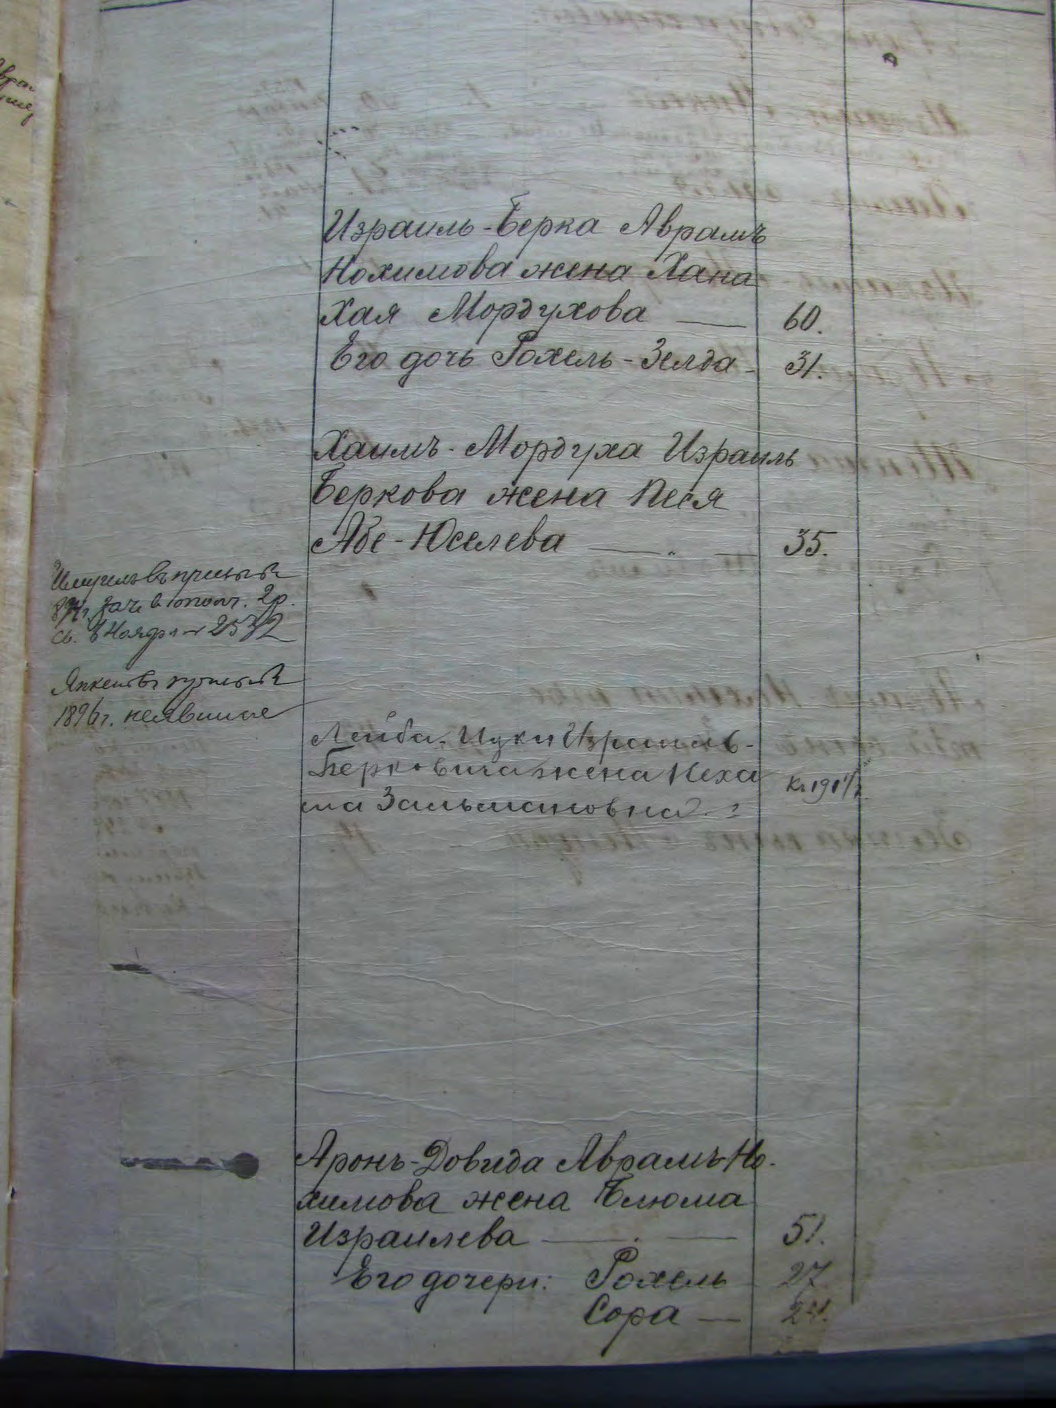 Израиль-Берка Аврамъ
Нохимова жена Хана
Хая Мордухова — 60.
Его дочь Рохель-Зелда - 31.
Хаимъ-Мордуха Израиль
Беркова жена Песя
Абе-Юселева — 35.
въ призывъ
зач. в ополч. 2р.
св. Ноябр 2532
призывъ
1896г. неявился
Лейба-Ицки Израиль-
Берковича жена Неха
ма Зальмановна
Аронъ-Довида Аврамъ-Но-
химова жена Блюма
Израилева — 51.
Его дочери: Рохель 27
Сора — 24.